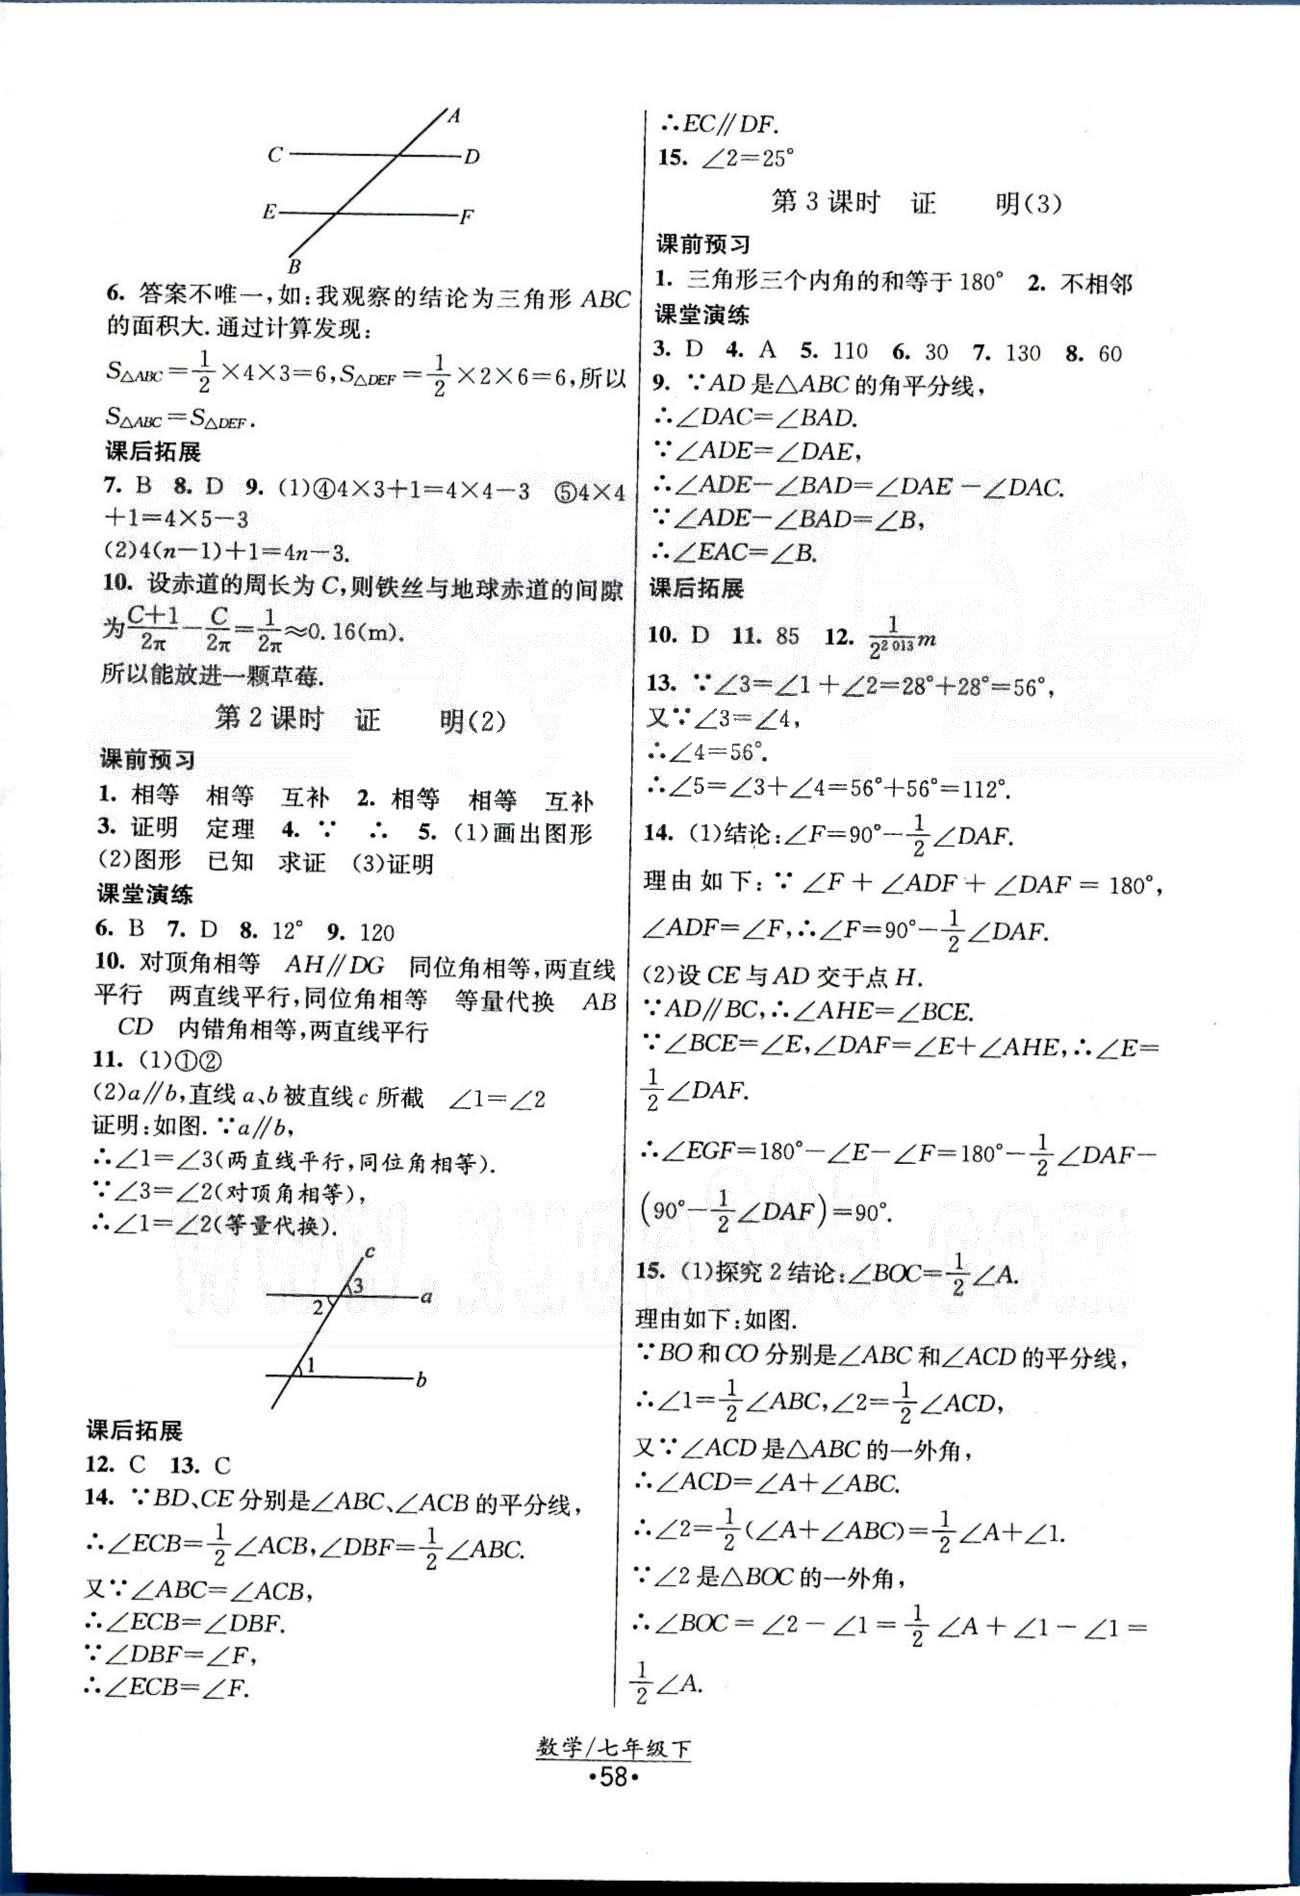 A
C
D
E
F
B
6. 答案不唯一,如:我观察的结论为三角形 ABC
的面积大.通过计算发现:
S△ABC=1/2×4×3=6,S△DEF=1/2×2×6=6,所以
S△ABC=S△DEF.
课后拓展
7. B 8. D 9. (1)④4×3+1=4×4-3 ⑤4×4
+1=4×5-3
(2)4(n-1)+1=4n-3.
10. 设赤道的周长为 C,则铁丝与地球赤道的间隙
为(C+1)/2π-C/2π=1/2π≈0.16(m).
所以能放进一颗草莓.
第 2 课时 证 明(2)
课前预习
1. 相等 相等 互补 2. 相等 相等 互补
3. 证明 定理 4. ∵ ∴ 5. (1)画出图形
(2)图形 已知 求证 (3)证明
课堂演练
6. B 7. D 8. 12° 9. 120
10. 对顶角相等 AH∥DG 同位角相等,两直线
平行 两直线平行,同位角相等 等量代换 AB
CD 内错角相等,两直线平行
11. (1)①②
(2)a∥b,直线 a、b 被直线 c 所截 ∠1=∠2
证明:如图.∵a∥b,
∴∠1=∠3(两直线平行,同位角相等).
∵∠3=∠2(对顶角相等),
∴∠1=∠2(等量代换).
c
3
2
a
1
b
课后拓展
12. C 13. C
14. ∵BD、CE 分别是∠ABC、∠ACB 的平分线,
∴∠ECB=1/2∠ACB,∠DBF=1/2∠ABC.
又∵∠ABC=∠ACB,
∴∠ECB=∠DBF.
∵∠DBF=∠F,
∴∠ECB=∠F.
∴EC∥DF.
15. ∠2=25°
第 3 课时 证 明(3)
课前预习
1. 三角形三个内角的和等于 180° 2. 不相邻
课堂演练
3. D 4. A 5. 110 6. 30 7. 130 8. 60
9. ∵AD 是△ABC 的角平分线,
∴∠DAC=∠BAD.
∵∠ADE=∠DAE,
∴∠ADE-∠BAD=∠DAE-∠DAC.
∵∠ADE-∠BAD=∠B,
∴∠EAC=∠B.
课后拓展
10. D 11. 85 12. 1/2^(2 013) m
13. ∵∠3=∠1+∠2=28°+28°=56°,
又∵∠3=∠4,
∴∠4=56°.
∴∠5=∠3+∠4=56°+56°=112°.
14. (1)结论:∠F=90°-1/2∠DAF.
理由如下:∵∠F+∠ADF+∠DAF=180°,
∠ADF=∠F,∴∠F=90°-1/2∠DAF.
(2)设 CE 与 AD 交于点 H.
∵AD∥BC,∴∠AHE=∠BCE.
∵∠BCE=∠E,∠DAF=∠E+∠AHE,∴∠E=
1/2∠DAF.
∴∠EGF=180°-∠E-∠F=180°-1/2∠DAF-
(90°-1/2∠DAF)=90°.
15. (1)探究 2 结论:∠BOC=1/2∠A.
理由如下:如图.
∵BO 和 CO 分别是∠ABC 和∠ACD 的平分线,
∴∠1=1/2∠ABC,∠2=1/2∠ACD,
又∵∠ACD 是△ABC 的一外角,
∴∠ACD=∠A+∠ABC.
∴∠2=1/2(∠A+∠ABC)=1/2∠A+∠1.
∵∠2 是△BOC 的一外角,
∴∠BOC=∠2-∠1=1/2∠A+∠1-∠1=
1/2∠A.
数学/七年级下
·58·